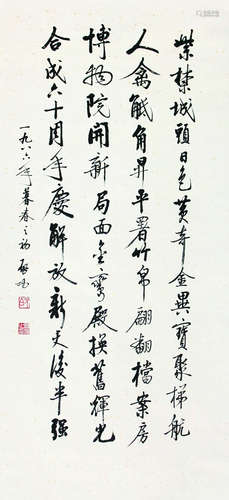 紫禁城頭日色黃奇金異寶聚梯航
人禽觝角昇平署竹帛翩翻檔案房
博物院開新局面金鑾殿換舊輝光
合成六十周年慶解放新史後半强
一九八六年暮春之初 啟功